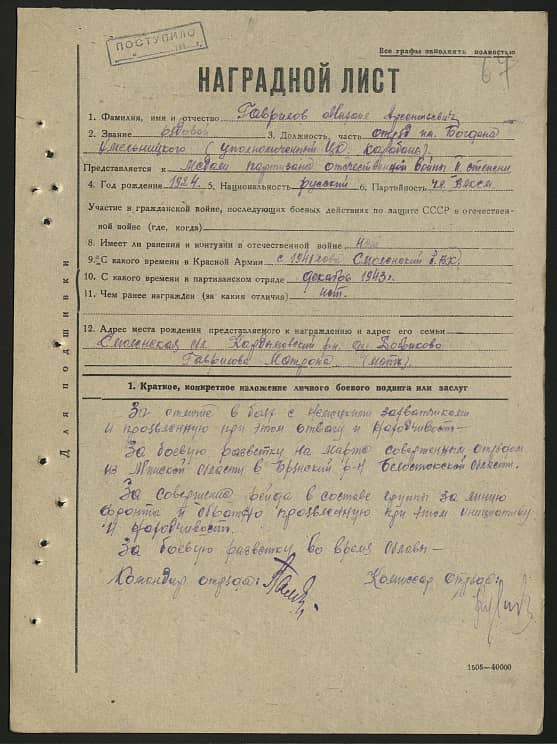 ПОСТУПИЛО
Все графы заполнять полностью
67
НАГРАДНОЙ ЛИСТ
1. Фамилия, имя и отчество Гаврилов Михаил Арсентьевич
2. Звание рядовой 3. Должность, часть отряд им. Богдана
Хмельницкого (уполномоченный ЦК
Представляется к Медали партизана отечественной войны II степени
4. Год рождения 1924. 5. Национальность русский 6. Партийность чл. ВЛКСМ
Участие в гражданской войне, последующих боевых действиях по защите СССР и отечествен-
ной войне (где, когда)
8. Имеет ли ранения и контузии в отечественной войне нет
9. С какого времени в Красной Армии с 1941 года Смоленский
10. С какого времени в партизанском отряде декабрь 1943 г.
11. Чем ранее награжден (за какия отличия) нет.
12. Адрес места рождения представляемого к награждению и адрес его семьи
Смоленская обл.
Гаврилова Матрона (мать)
Для подшивки
1. Краткое, конкретное изложение личного боевого подвига или заслуг
За отличие в боях с немецкими захватчиками
и проявленную при этом отвагу и находчивость—
За боевую разветку на марше совершенным отрядом
из Минской области в р-н Белостокской области.
За совершение рейда в составе группы за линию
фронта и обратно проявленную при этом инициативу
и находчивость.
За боевую разветку во время блокады—
Командир отряда:
Комиссар отряда:
1505—40000